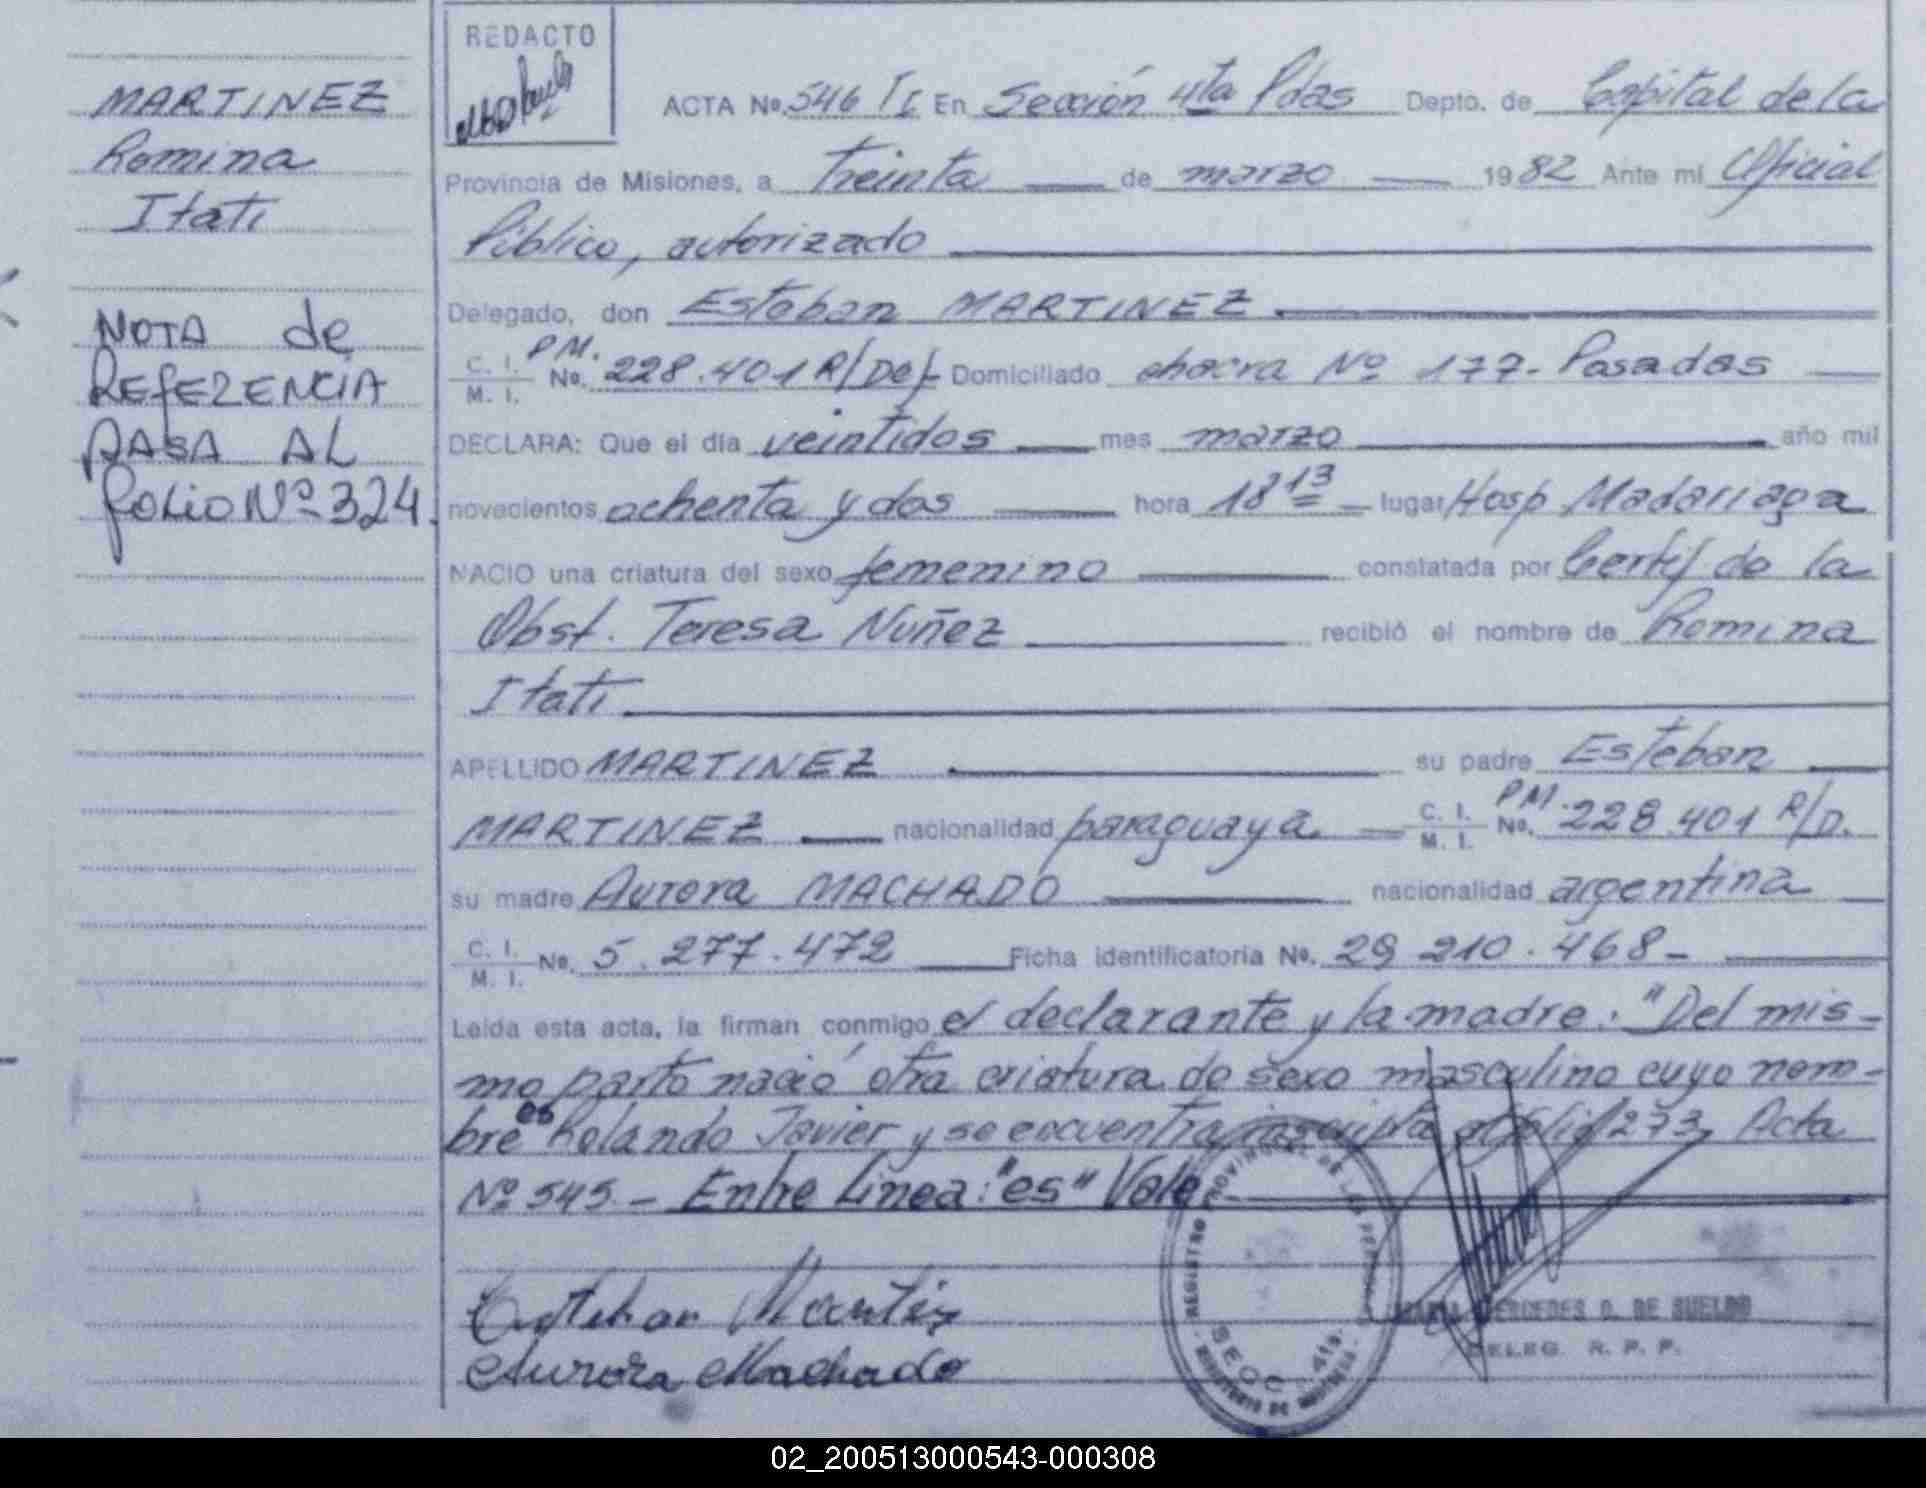 MARTINEZ
Romina
Itatí
NOTA de
REFERENCIA
PASA AL
folio Nº 324.
REDACTO
ACTA No. 546 TI En Sección 4ta Pdas Depto. de Capital de la
Provincia de Misiones, a treinta de marzo 1982 Ante mí Oficial
Público, autorizado
Delegado, don Esteban MARTINEZ
C. I. M. I. PM. No. 228.401 R/Def Domiciliado chacra Nº 177- Posadas
DECLARA: Que el día veintidos mes marzo año mil
novecientos ochenta y dos hora 18 13 lugar Hosp Madariaga
NACIO una criatura del sexo femenino constatada por Certif de la
Obst. Teresa Nuñez recibió el nombre de Romina
Itatí
APELLIDO MARTINEZ su padre Esteban
MARTINEZ nacionalidad paraguaya C. I. M. I. PM. No. 228.401 R/D.
su madre Aurora MACHADO nacionalidad argentina
C. I. M. I. No. 5.277.472 Ficha identificatoria No. 29 210.468-
Leída esta acta, la firman conmigo el declarante y la madre. "Del mis-
mo parto nació otra criatura de sexo masculino cuyo nom-
bre es Rolando Javier y se encuentra inscripta al folio 273, Acta
Nº 545 - Entre Línea: "es" Vale
Esteban Martinez
Aurora Machado
REGISTRO PROVINCIAL DE LAS PERSONAS
SECC. 4ta.
MERCEDES D. DE SUELDO
DELEG. R. P. P.
02_200513000543-000308